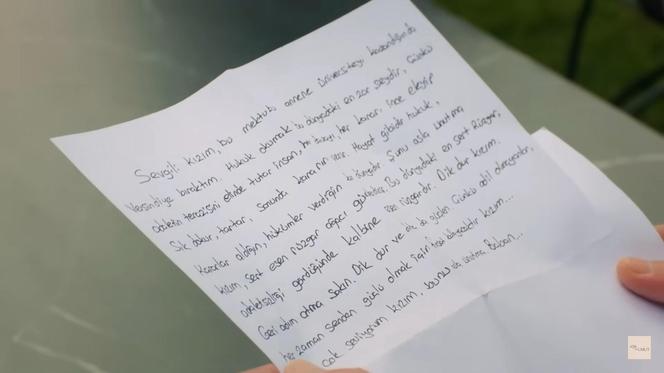 Sevgili kızım, bu mektubu annene üniversiteyi kazandığında
versin diye bıraktım. Hukuk okumak bu dünyadaki en zor şeydir, çünkü
adaletin terazisini elinde tutar insan, her kararı
Sık dokur, tartar, sonunda kararını verir. Hayat gibidir hukuk,
kararlar aldığın, hükümler verdiğin Şunu asla unutma
kızım, sert esen rüzgar ağacı güçlendirir. Bu dünyadaki en sert rüzgar,
adaletsizliği gördüğünde kalbine esen rüzgardır. Dik dur kızım.
Geri adım atma sakın. Dik dur ve güçlen. Çünkü adil olmayanlar,
her zaman senden güçlü olmak için kızım...
Çok seviyorum kızım, bunu unutma. Baban...